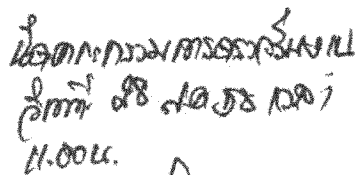 นัดคณะกรรมการตรวจรับงาน
วันที่ 28 ต.ค. 58 เวลา
11.00น.